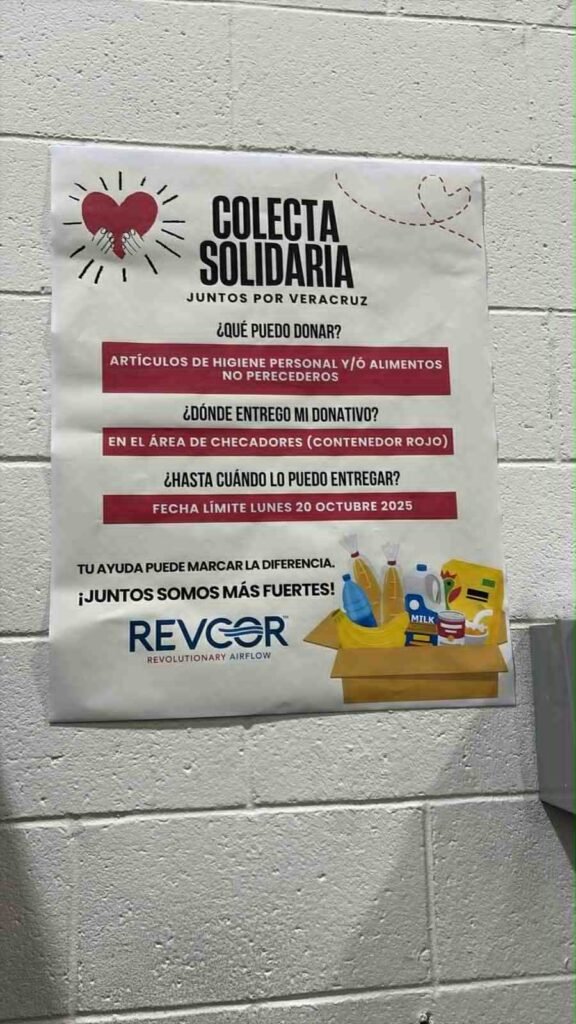 COLECTA
SOLIDARIA
JUNTOS POR VERACRUZ
¿QUÉ PUEDO DONAR?
ARTÍCULOS DE HIGIENE PERSONAL Y/Ó ALIMENTOS
NO PERECEDEROS
¿DÓNDE ENTREGO MI DONATIVO?
EN EL ÁREA DE CHECADORES (CONTENEDOR ROJO)
¿HASTA CUÁNDO LO PUEDO ENTREGAR?
FECHA LÍMITE LUNES 20 OCTUBRE 2025
TU AYUDA PUEDE MARCAR LA DIFERENCIA.
¡JUNTOS SOMOS MÁS FUERTES!
MILK
REVCOR
REVOLUTIONARY AIRFLOW